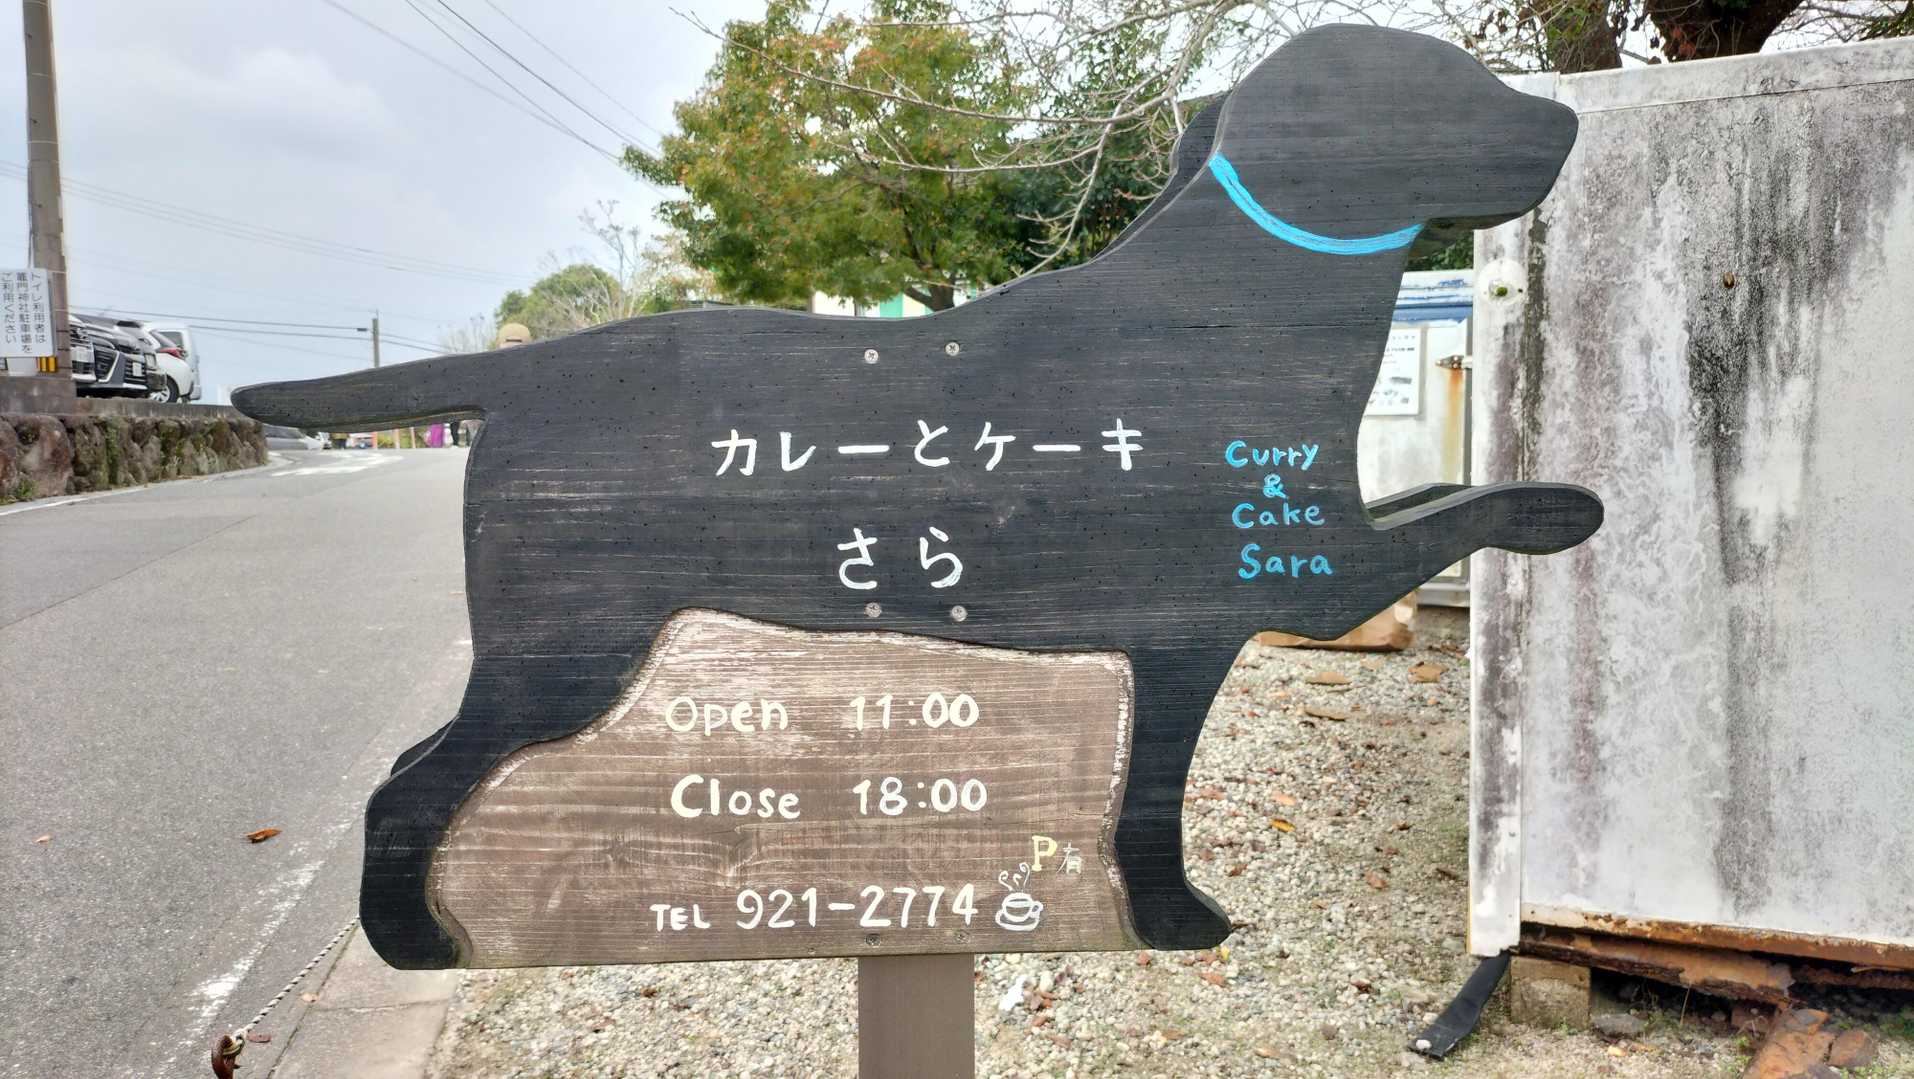 カレーとケーキ
さら
Curry
&
Cake
Sara
Open 11:00
Close 18:00
P有
TEL 921-2774
トイレ利用者は
竈門神社駐車場を
ご利用ください